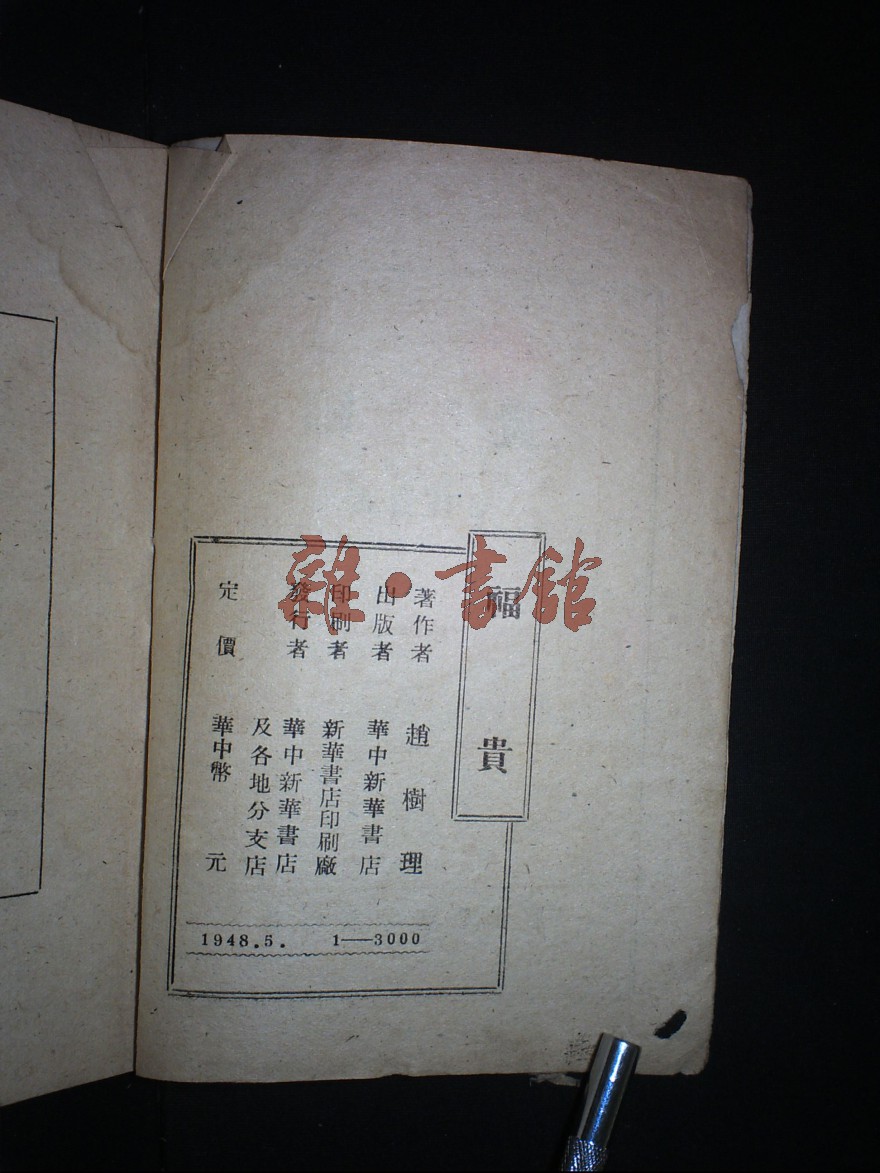 福貴
著作者 趙樹理
出版者 華中新華書店
印刷者 新華書店印刷廠
發行者 華中新華書店
及各地分支店
定價 華中幣 元
1948.5. 1——3000
雜·書館